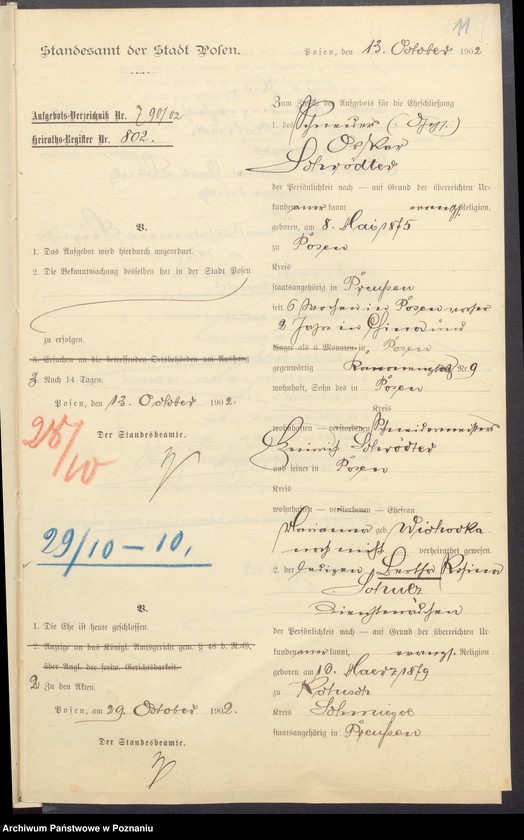 11
Standesamt der Stadt Posen.
Posen, den 13. October 1902
Aufgebots-Verzeichniß Nr. 790/02
Heiraths-Register Nr. 802.
V.
1. Das Aufgebot wird hierdurch angeordnet.
2. Die Bekanntmachung desselben hat in der Stadt Posen
zu erfolgen.
3. Ersuchen an die betreffenden Ortsbehörden um Aushang
3 Nach 14 Tagen.
Posen, den 13. October 1902.
Der Standesbeamte.
25/10
29/10 - 10.
V.
1. Die Ehe ist heute geschlossen.
2. Anzeige an das Königl. Amtsgericht gem. § 48 d. R.-G.
über Angl. der freiw. Gerichtsbarkeit.
2 Zu den Akten.
Posen, am 29. October 1902.
Der Standesbeamte.
Zum Zwecke des Aufgebots für die Eheschließung
1. des Schneider
Oskar
Schrödter
der Persönlichkeit nach — auf Grund der überreichten Ur-
kunden anerkannt evang. Religion,
geboren, am 8. Mai 1875
zu Posen
Kreis
staatsangehörig in Preußen
seit 6 Wochen in Posen vorher
2 Jahr in China und
länger als 6 Monaten in Posen
gegenwärtig Kanonenplatz Nr. 9
wohnhaft, Sohn des in Posen
Kreis
wohnhaften — verstorbenen Schneidermeisters
Heinrich Schrödter
und seiner in Posen
Kreis
wohnhaften — verstorbenen — Ehefrau
Marianna geb. Wichovka
noch nicht verheirathet gewesen.
2. der ledigen Bertha Rosina
Schulz
Dienstmädchen
der Persönlichkeit nach — auf Grund der überreichten Ur-
kunden anerkannt, evang. Religion
geboren am 10. Maerz 1879
zu Kotusch
Kreis Schmiegel
staatsangehörig in Preußen
Archiwum Państwowe w Poznaniu